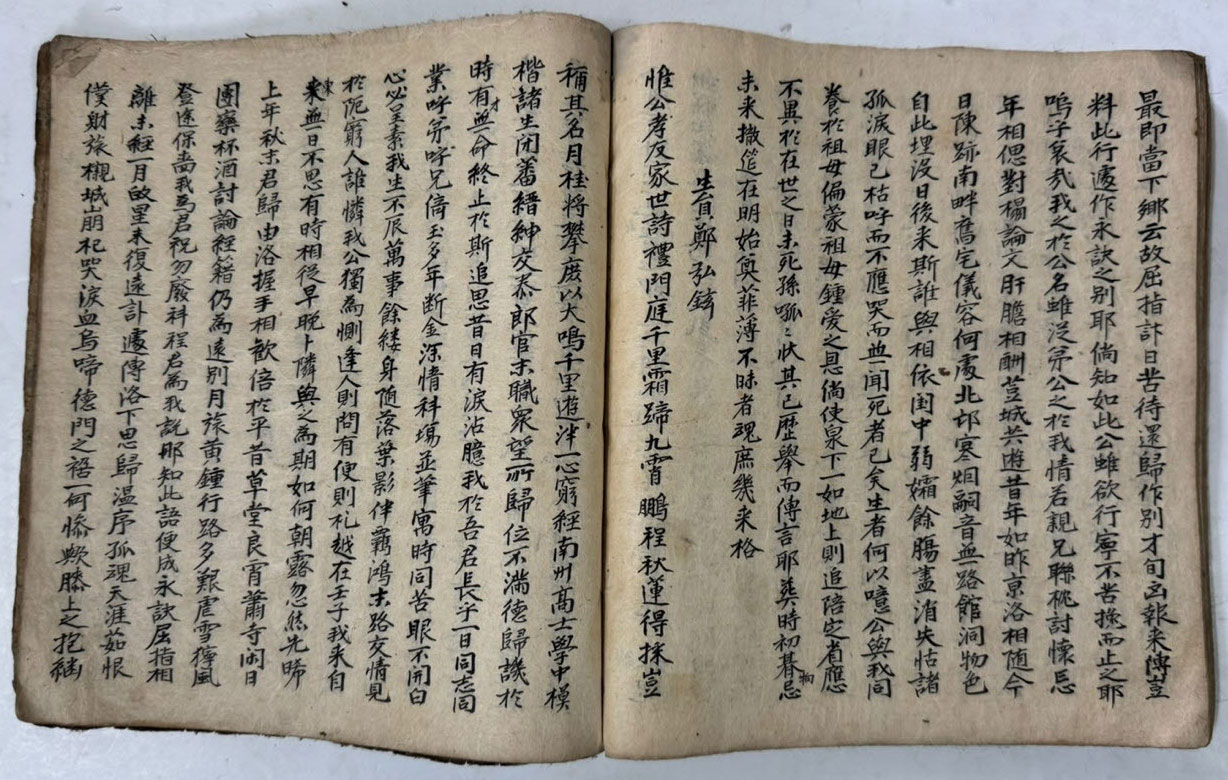 最即當下鄉云故屈指計日苦待還歸作別才旬凶報来傳豈
料此行遽作永訣之別耶倘知如此公雖欲行寧不苦挽而止之耶
嗚乎哀哉我之於公名雖泛弟公之於我情若親兄聯枕討懷忘
年相偲對榻論文肝膽相酬荳城共遊昔年如昨京洛相随今
日陳跡南畔舊宅儀容何處北邙寒烟嗣音無路館洞物色
自此埋没日後来斯誰與相依閨中弱孀餘膓盡消失怙諸
孤淚眼已枯呼而不應哭而無聞死者已矣生者何以噫公與我同
養於祖母偏蒙祖母鍾愛之恩倘使泉下一如地上則追陪定省應
不異於在世之日未死孫呱〻狀其已歷擧而傳言耶葬時初朞忌拘
未来撤筵在明始奠菲薄不昧者魂庶幾来格
生員鄭弘鑄
惟公孝友家世詩禮門庭千里霜蹄九霄鵬程秋蓮得採豈
稱其名月桂將攀庶以大鳴千里遊泮一心窮經南州高士學中模
楷諸生閉蓄縉紳交泰郎官末職衆望所歸位不滿德歸譏於
時有才無命終止於斯追思昔日有淚沾臆我於吾君長乎一日同志同
業呼弟呼兄儕玉多年断金深情科場並筆寓時同苦眼不開白
心必呈素我生不辰萬事餘縷身随落葉影伴羈鴻末路交情見
於阨窮人誰憐我公獨為惻逢人則問有便則札越在壬子我来自
東来無日不思有時相從早晚卜隣與之為期如何朝露忽然先晞
上年秋末君歸由洛握手相歡倍於平昔草堂良宵蕭寺閑日
團欒杯酒討論經籍仍為遠別月旅黄鍾行路多艱虐雪獰風
登途保嗇我為君祝勿廢科程君為我說那知此語便成永訣屈指相
離未經一月故里未復遠訃遽傳洛下思歸温序孤魂天涯茹恨
僕射旅櫬城崩杞哭淚血烏啼德門之禍一何慘歟膝上之抱緬